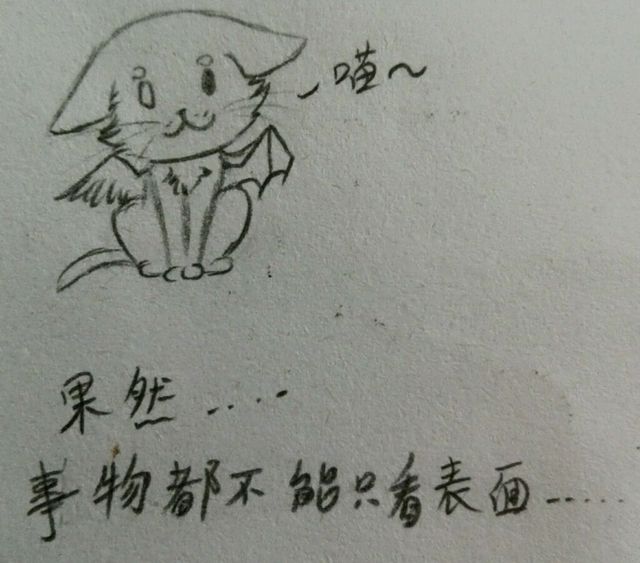 喵~
果然....
事物都不能只看表面......